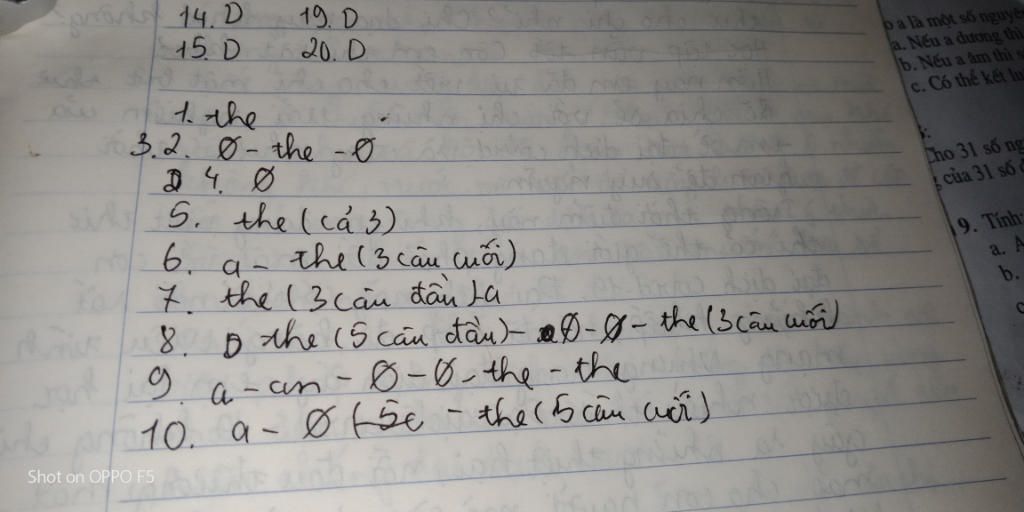 14. D 19. D
15. D 20. D
1. the
3.2. Ø - the - Ø
4. Ø
5. the (cả 3)
6. a - the (3 câu cuối)
7. the (3 câu đầu) - a
8. the (5 câu đầu) - Ø - Ø - the (3 câu cuối)
9. a - an - Ø - Ø - the - the
10. a - Ø - the (5 câu cuối)
Shot on OPPO F5
a là một số nguyê
a. Nếu a dương thì
b. Nếu a âm thì s
c. Có thể kết lu
Cho 31 số ng
của 31 số
9. Tính:
a.
b.